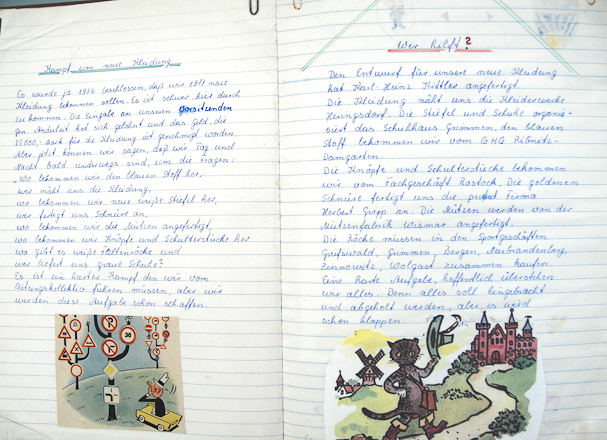 Kampf um neue Kleidung
Es wurde ja 1976 beschlossen, daß wir 1977 neue
Kleidung bekommen sollen. Es ist schwer, hier durch
zu kommen. Die Eingabe an unseren Vorsitzenden
Gen. hat sich gelohnt und das Geld, die
35000,- Mark für die Kleidung ist genehmigt worden.
Aber jetzt können wir sagen, daß wir Tag und
Nacht bald unterwegs sind, um die Fragen:
"Wo bekommen wir den blauen Stoff her,
wer näht uns die Kleidung,
wo bekommen wir neue weiße Stiefel her,
wer fertigt uns Schnüre an,
wo bekommen wir die Mützen angefertigt,
wo bekommen wir Knöpfe und Schulterstücke her
wo gibt es weiße Faltenröcke und
wer liefert uns graue Schuhe?
Es ist ein harter Kampf den wir vom
Leitungskollektiv führen müssen, aber wir
werden diese Aufgabe schon schaffen.
30
Wer hilft?
Den Entwurf für unsere neue Kleidung
hat Karl-Heinz angefertigt.
Die Kleidung näht uns die Kleiderwerke
Hennigsdorf. Die Stiefel und Schuhe organi-
siert das Schuhhaus Grimmen, den blauen
Stoff bekommen wir vom GHG Ribnitz-
Damgarten.
Die Knöpfe und Schulterstücke bekommen
wir vom Fachgeschäft Rostock. Die goldenen
Schnüre fertigt uns die Firma
Herbert Grapp an. Die Mützen werden von der
Mützenfabrik Wismar angefertigt.
Die Röcke müssen in den Sportgeschäften
Greifswald, Grimmen, Bergen, Neubrandenburg,
Zinnowitz, Wolgast zusammen kaufen.
Eine harte Aufgabe, hoffentlich überstehen
wir alles. Denn alles soll hingebracht
und abgeholt werden, aber es wird
schon klappen.